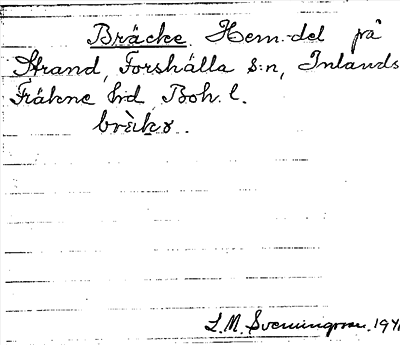 Bräcke Hem.-del på
Strand, Forshälla s:n, Inlands
Fräkne hd, Boh. l.
L.M. Svenningsson. 194